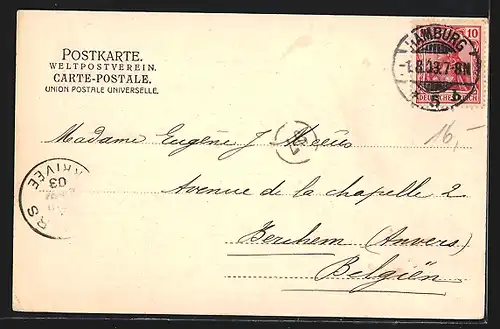 POSTKARTE.
WELTPOSTVEREIN.
CARTE-POSTALE.
UNION POSTALE UNIVERSELLE.
HAMBURG
1.8.03.7-8N
5 b.
10
DEUTSCHES REICH
16,-
Madame Eugène J.
Avenue de la chapelle 2
Berchem (Anvers)
Belgiën
ARRIVÉE
03